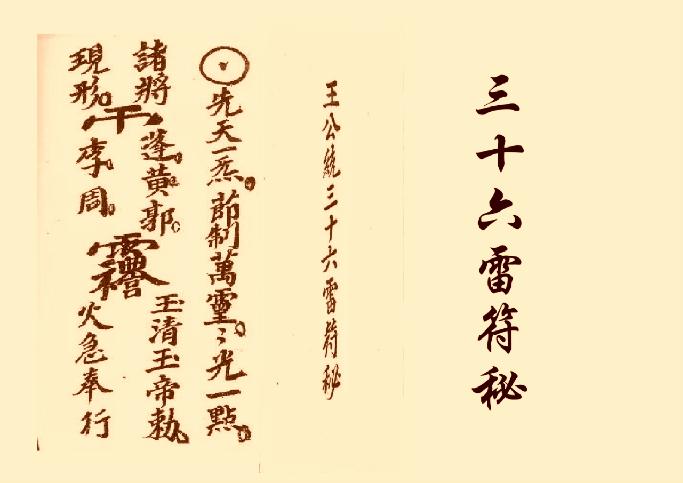 三十六雷符秘
王公統三十六雷符秘
先天一炁。節制萬靈。〻光一點。
諸將蓬。黃。郭。玉清玉帝勅。
現形。李。周。火急奉行